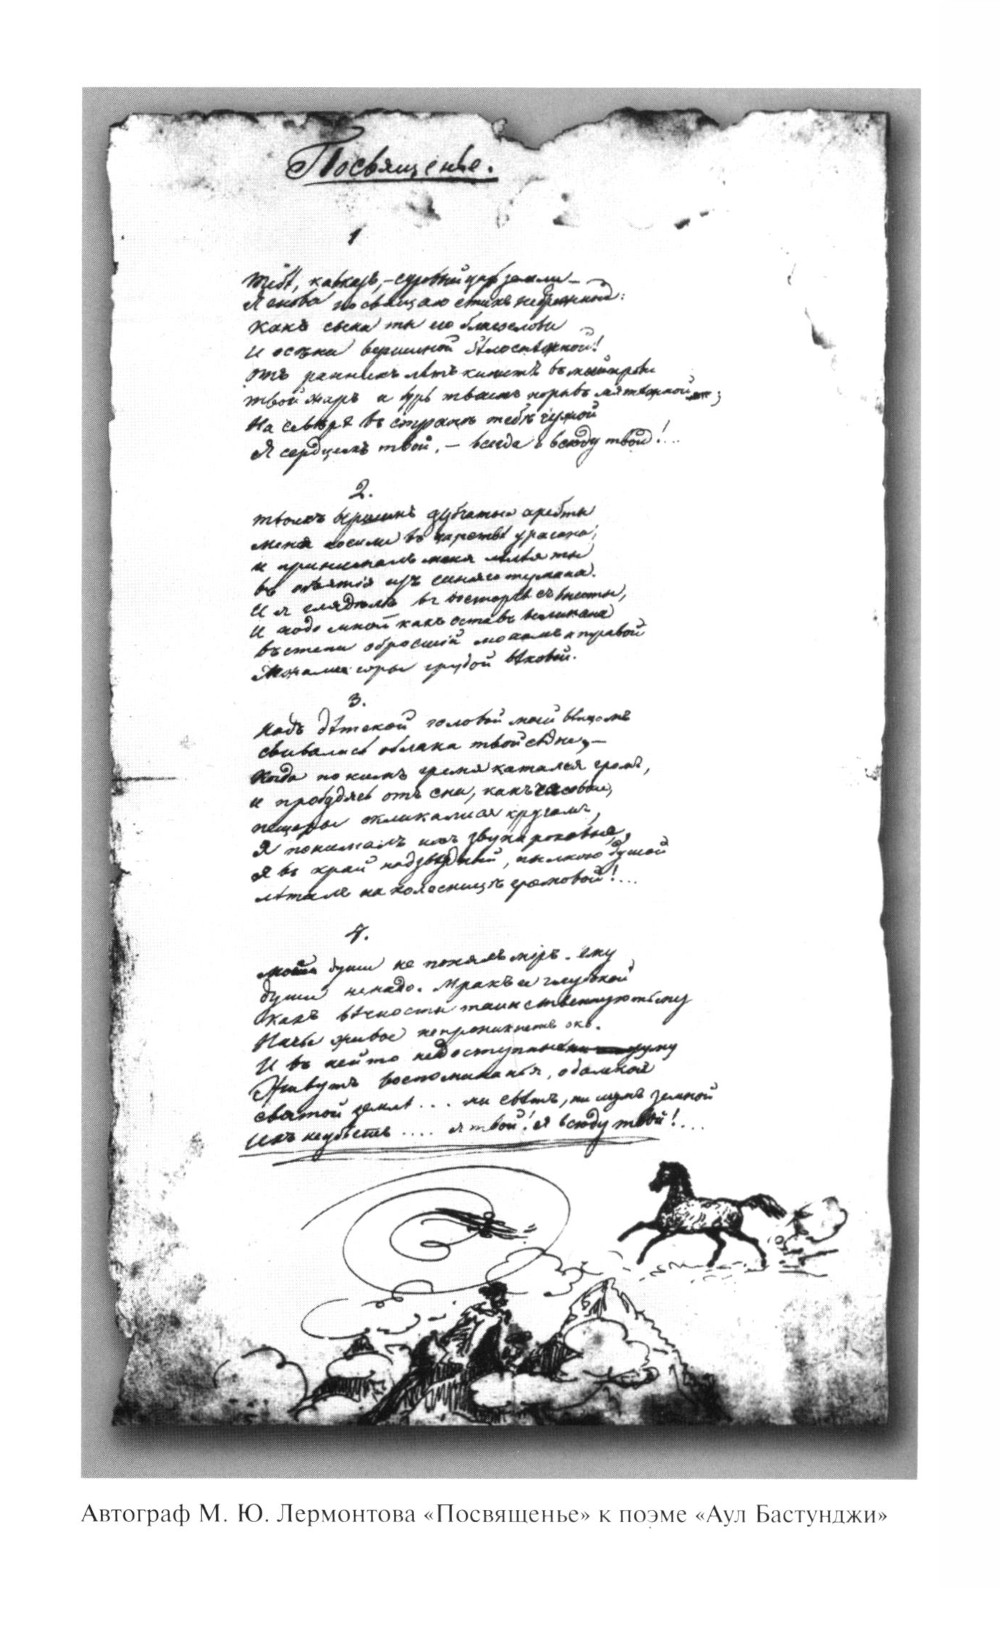 Посвященье.
1
Тебѣ, Кавказъ, – суровый царь земли –
Я снова посвящаю стихъ небрежный:
Какъ сына ты его благослови
И осѣни вершиной бѣлоснѣжной!
Отъ раннихъ лѣтъ кипитъ въ моей крови
Твой жаръ и бурь твоихъ порывъ мятежной;
На сѣверѣ въ странѣ тебѣ чужой
Я сердцемъ твой, – всегда и всюду твой!...
2.
Твоихъ вершинъ зубчатые хребты
Меня носили въ царствѣ урагана;
И принималъ меня лелѣя ты
Въ объятія изъ синяго тумана.
И я глядѣлъ въ восторгѣ съ высоты,
И подо мной какъ остовъ великана
Въ степи обросшій мохомъ и травой
Лежали горы грудой вѣковой.
3.
Надъ дѣтской головой моей вѣнцомъ
Свивались облака твои сѣдые, –
Когда по нимъ гремя катался громъ,
И пробудясь отъ сна, какъ часовые,
Пещеры окликалися кругомъ,
Я понималъ ихъ звуки роковые,
Я въ край надзвѣздный, пылкою душой
Леталъ на колесницѣ громовой!...
4.
Моей души не понялъ міръ. ему
Души ненадо. Мракъ ея глубокой
Какъ вѣчности таинственную тьму
Ничье живое непроникнетъ око.
И въ ней-то недоступныя уму
Живутъ воспоминанья, о далекой
Святой землѣ ... ни свѣтъ, ни шумъ земной
Ихъ не убьетъ .... я твой! я всюду твой!...
Автограф М. Ю. Лермонтова «Посвященье» к поэме «Аул Бастунджи»